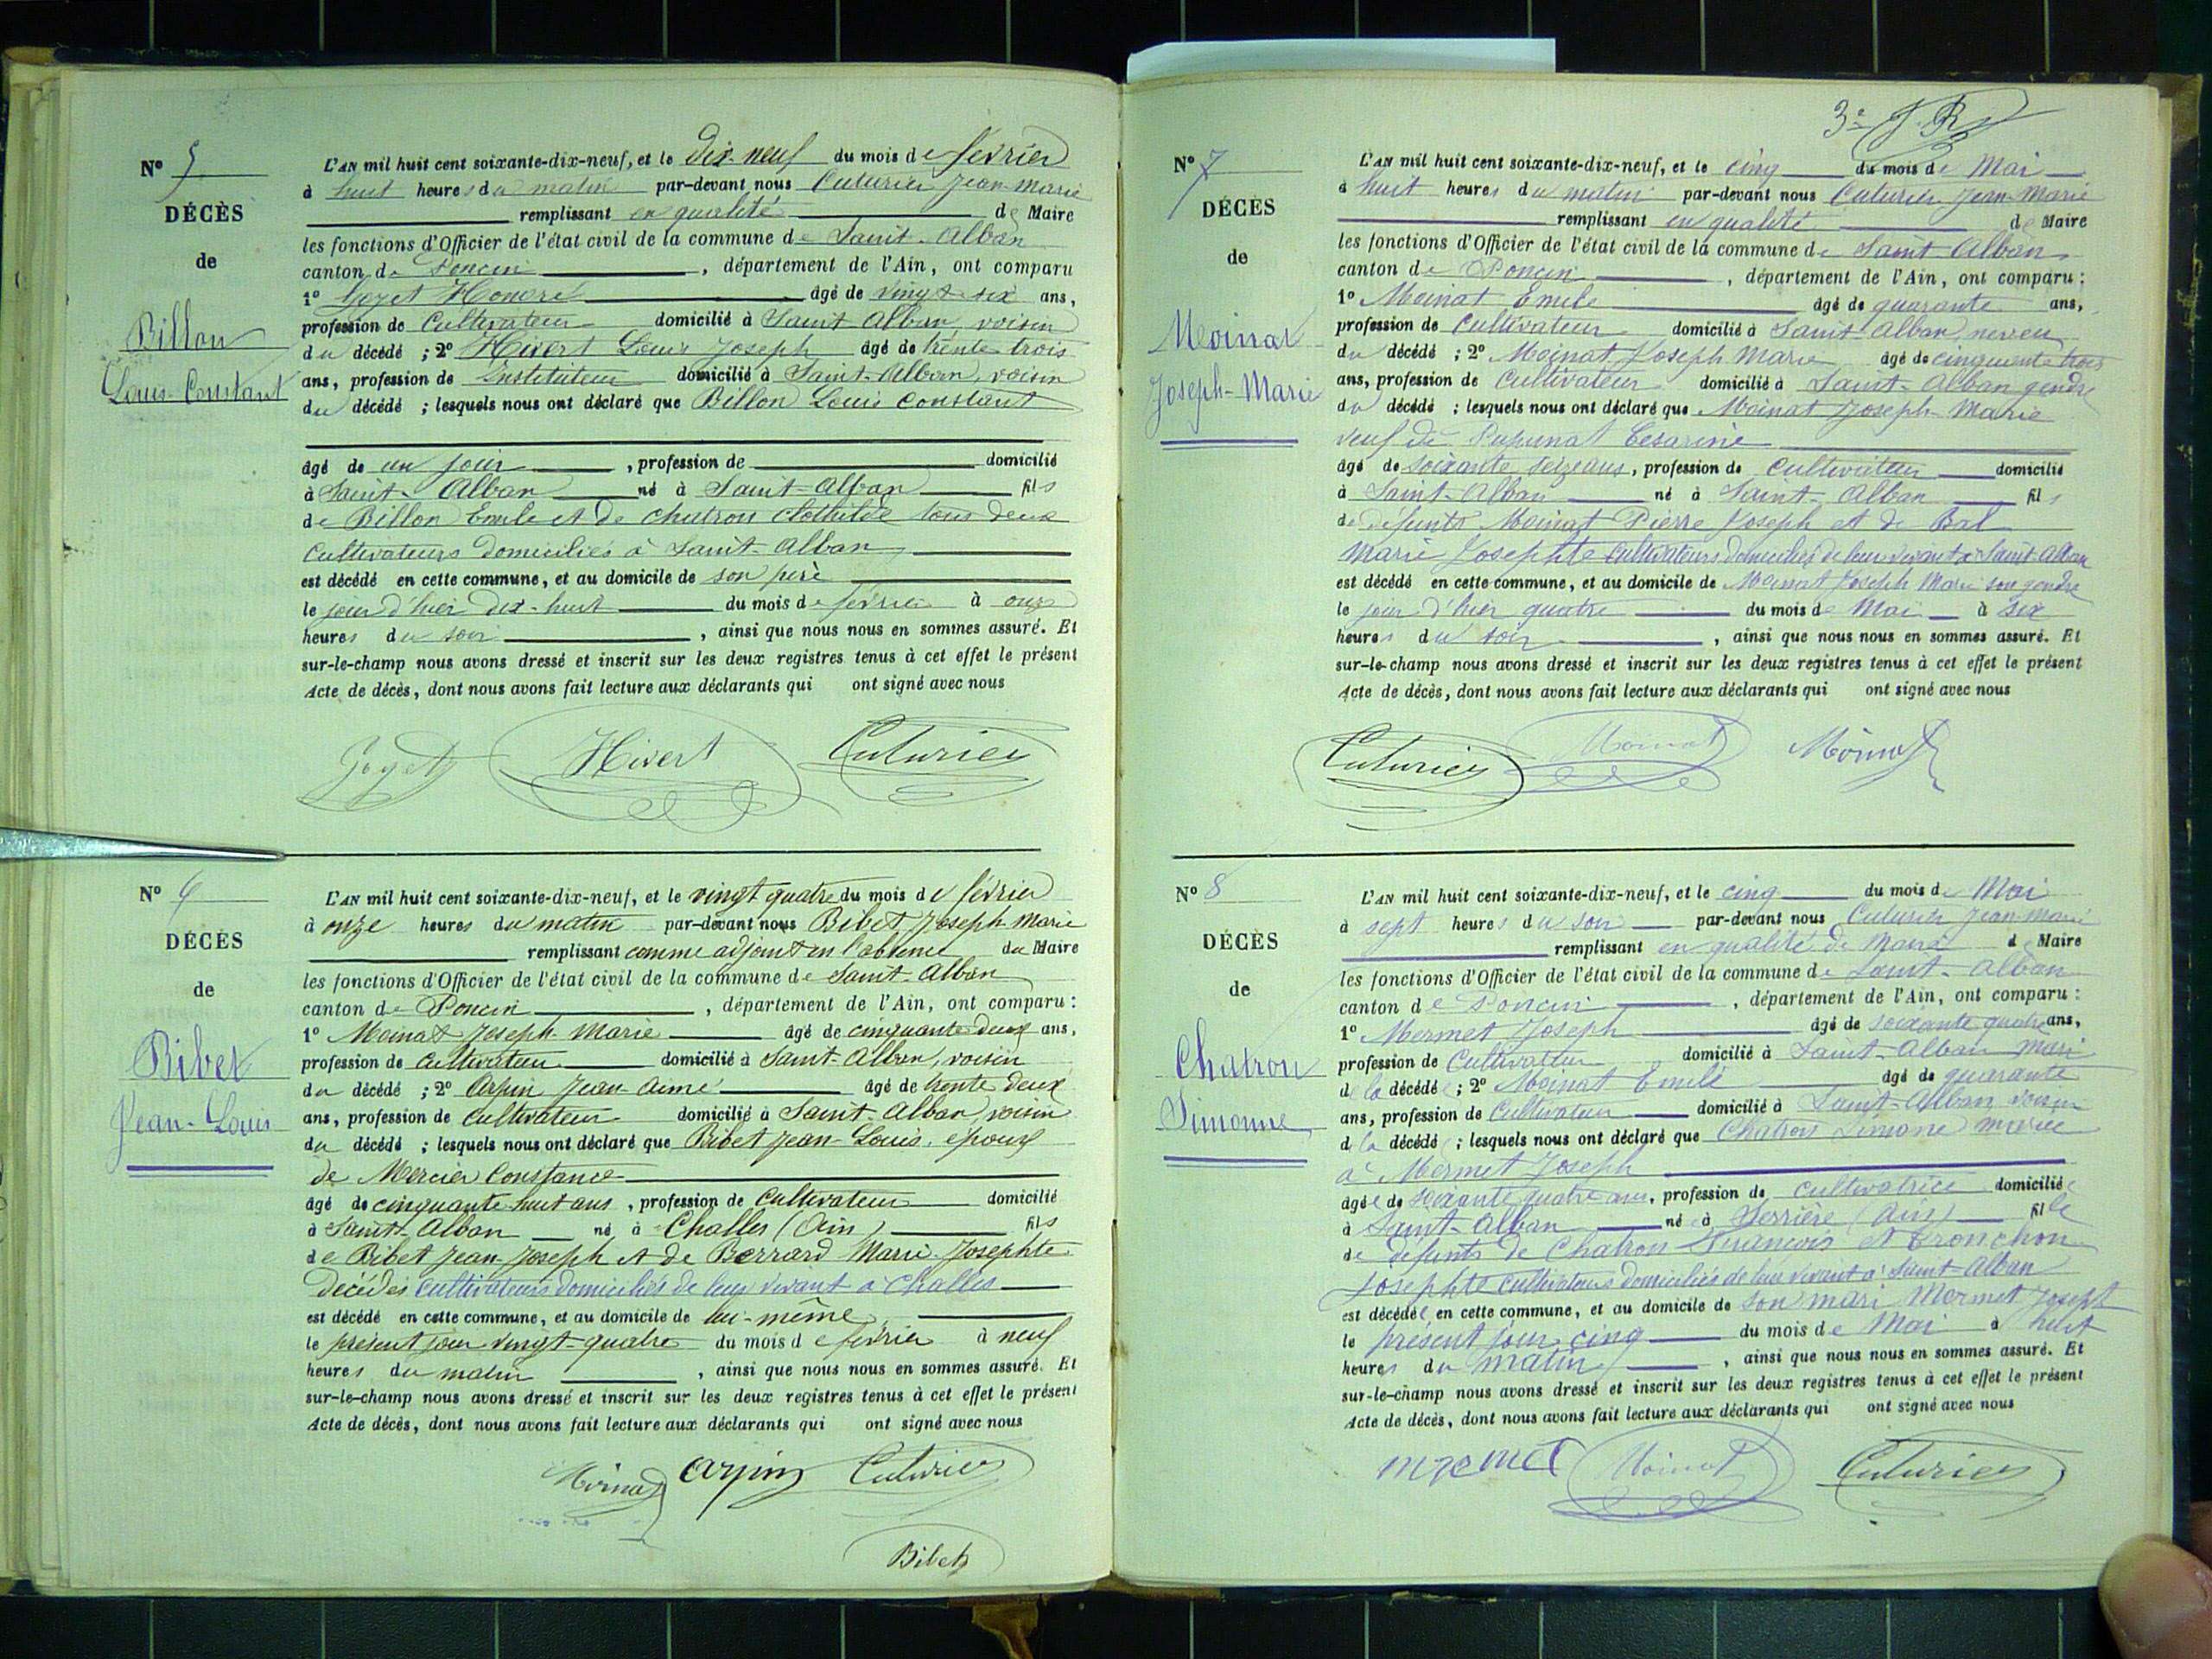 N° 5
DÉCÈS
de
Billon
Louis Constant
L'AN mil huit cent soixante-dix-neuf, et le dix-neuf du mois de février
à huit heures du matin par-devant nous Cuturier Jean-Marie
remplissant en qualité de Maire
les fonctions d'Officier de l'état civil de la commune de Saint-Alban
canton de Poncin, département de l'Ain, ont comparu
1° Goyet Honoré âgé de vingt-six ans,
profession de Cultivateur domicilié à Saint Alban, voisin
du décédé ; 2° Hivert Louis Joseph âgé de trente trois
ans, profession de Instituteur domicilié à Saint-Alban, voisin
du décédé ; lesquels nous ont déclaré que Billon Louis Constant
âgé de un jour, profession de domicilié
à Saint-Alban né à Saint-Alban fils
de Billon Emile et de Chatron Clothilde tous deux
Cultivateurs domiciliés à Saint-Alban
est décédé en cette commune, et au domicile de son père
le jour d'hier dix-huit du mois de février à onze
heures du soir, ainsi que nous nous en sommes assuré. Et
sur-le-champ nous avons dressé et inscrit sur les deux registres tenus à cet effet le présent
Acte de décès, dont nous avons fait lecture aux déclarants qui ont signé avec nous
Goyet Hivert Cuturier
N° 6
DÉCÈS
de
Bibet
Jean-Louis
L'AN mil huit cent soixante-dix-neuf, et le vingt quatre du mois de février
à onze heures du matin par-devant nous Bibet Joseph Marie
remplissant comme adjoint en l'absence du Maire
les fonctions d'Officier de l'état civil de la commune de Saint-Alban
canton de Poncin, département de l'Ain, ont comparu :
1° Moinat Joseph Marie âgé de cinquante deux ans,
profession de cultivateur domicilié à Saint-Alban, voisin
du décédé ; 2° Arpin Jean Aimé âgé de trente deux
ans, profession de Cultivateur domicilié à Saint-Alban, voisin
du décédé ; lesquels nous ont déclaré que Bibet Jean-Louis, époux
de Mercier Constance
âgé de cinquante huit ans, profession de Cultivateur domicilié
à Saint-Alban né à Challes (Ain) fils
de Bibet Jean-Joseph et de Berrard Marie-Josephte
décédés cultivateurs domiciliés de leur vivant à Challes
est décédé en cette commune, et au domicile de lui-même
le présent jour vingt-quatre du mois de février à neuf
heures du matin, ainsi que nous nous en sommes assuré. Et
sur-le-champ nous avons dressé et inscrit sur les deux registres tenus à cet effet le présent
Acte de décès, dont nous avons fait lecture aux déclarants qui ont signé avec nous
Moinat Arpin Cuturier
Bibet
3e J. R
N° 7
DÉCÈS
de
Moinat
Joseph-Marie
L'AN mil huit cent soixante-dix-neuf, et le cinq du mois de Mai
à huit heures du matin par-devant nous Cuturier Jean-Marie
remplissant en qualité de Maire
les fonctions d'Officier de l'état civil de la commune de Saint Alban
canton de Poncin, département de l'Ain, ont comparu :
1° Moinat Emile âgé de quarante ans,
profession de Cultivateur domicilié à Saint-Alban, neveu
du décédé ; 2° Moinat Joseph Marie âgé de cinquante trois
ans, profession de Cultivateur domicilié à Saint-Alban gendre
du décédé ; lesquels nous ont déclaré que Moinat Joseph-Marie
veuf de Césarine
âgé de soixante seize ans, profession de Cultivateur domicilié
à Saint-Alban né à Saint-Alban fils
de défunts Moinat Pierre Joseph et de Bal
Marie Josephte Cultivateurs domiciliés de leur vivant à Saint-Alban
est décédé en cette commune, et au domicile de Moinat Joseph Marie son gendre
le jour d'hier quatre du mois de Mai à six
heures du soir, ainsi que nous nous en sommes assuré. Et
sur-le-champ nous avons dressé et inscrit sur les deux registres tenus à cet effet le présent
Acte de décès, dont nous avons fait lecture aux déclarants qui ont signé avec nous
Cuturier Moinat Moinat
N° 8
DÉCÈS
de
Chatron
Simonne
L'AN mil huit cent soixante-dix-neuf, et le cinq du mois de Mai
à sept heures du soir par-devant nous Cuturier Jean-Marie
remplissant en qualité de Maire d Maire
les fonctions d'Officier de l'état civil de la commune de Saint-Alban
canton de Poncin, département de l'Ain, ont comparu :
1° Mermet Joseph âgé de soixante quatre ans,
profession de Cultivateur domicilié à Saint-Alban mari
de la décédée ; 2° Moinat Emile âgé de quarante
ans, profession de Cultivateur domicilié à Saint-Alban voisin
de la décédée ; lesquels nous ont déclaré que Chatron Simone mariée
à Mermet Joseph
âgée de soixante quatre ans, profession de cultivatrice domiciliée
à Saint-Alban née à Serrière (Ain) fille
de défunts de Chatron François et Tronchon
Josephte cultivateurs domiciliés de leur vivant à Saint Alban
est décédée en cette commune, et au domicile de son mari Mermet Joseph
le présent jour cinq du mois de Mai à huit
heures du matin, ainsi que nous nous en sommes assuré. Et
sur-le-champ nous avons dressé et inscrit sur les deux registres tenus à cet effet le présent
Acte de décès, dont nous avons fait lecture aux déclarants qui ont signé avec nous
Moinat Cuturier